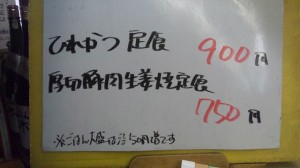 ひれかつ定食 900円
厚切豚肉生姜焼定食
750円
※ごはん大盛 50円増です